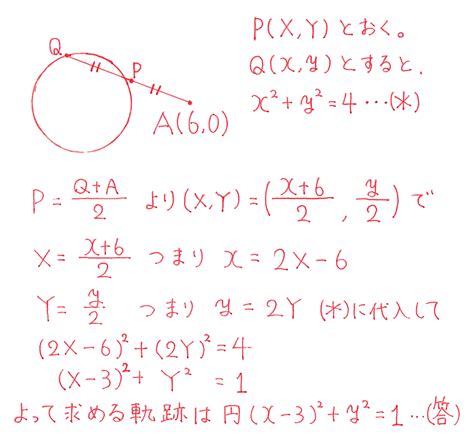 Q
P
A(6,0)
P(X,Y)とおく。
Q(x,y)とすると、
x²+y²=4…(*)
P=\frac{Q+A}{2} より (X,Y)=(\frac{x+6}{2}, \frac{y}{2})で
X=\frac{x+6}{2} つまり x=2X-6
Y=\frac{y}{2} つまり y=2Y (*)に代入して
(2X-6)²+(2Y)²=4
(X-3)²+Y²=1
よって求める軌跡は円(x-3)²+y²=1…(答)